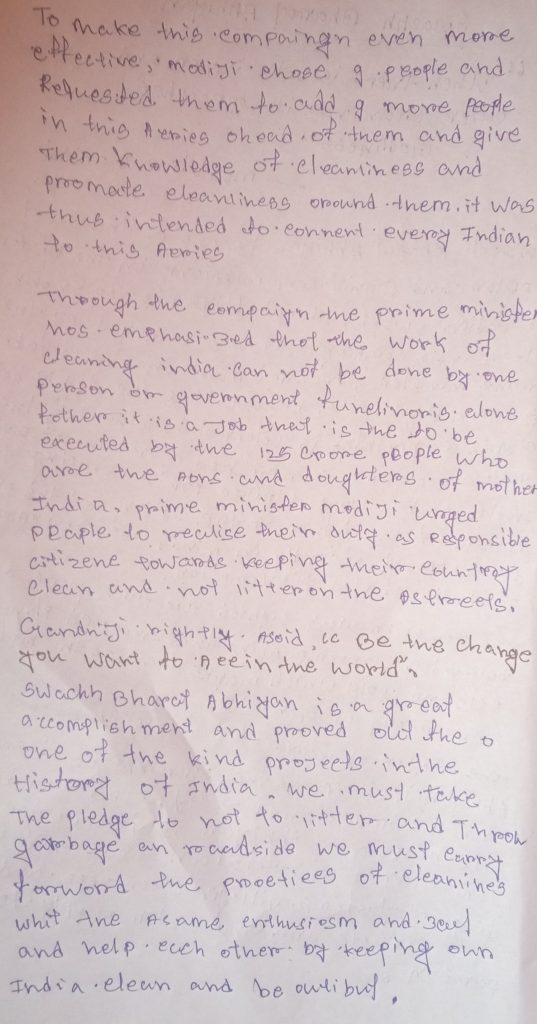 To make this compaingn even more
effective, modiji chose 9 people and
Requested them to add 9 more People
in this Aeries ohead of them and give
Them Knowledge of cleanliness and
promate cleanliness oround them. it was
thus intended to connent every Indian
to this Aeries
Through the compaign the prime minister
hos emphasized thot the work of
cleaning india can not be done by one
person or government alone
Rother it is a Job that is the to be
executed by the 125 Crore people who
are the Aons and doughters of mother
India, prime minister modiji urged
people to realise their duty as Responsible
citizene towards keeping their country
clean and not litter on the Astreets.
Gandhiji rightly Asoid, cc Be the change
you want to Aee in the world".
Swachh Bharat Abhiyan is a great
accomplishment and proved out the o
one of the kind projects in the
History of India. we must take
The pledge to not to litter and Throw
garbage an roadside we must carry
forword the of cleanlines
whit the Asame enthusiosm and
and help each other by keeping own
India clean and be